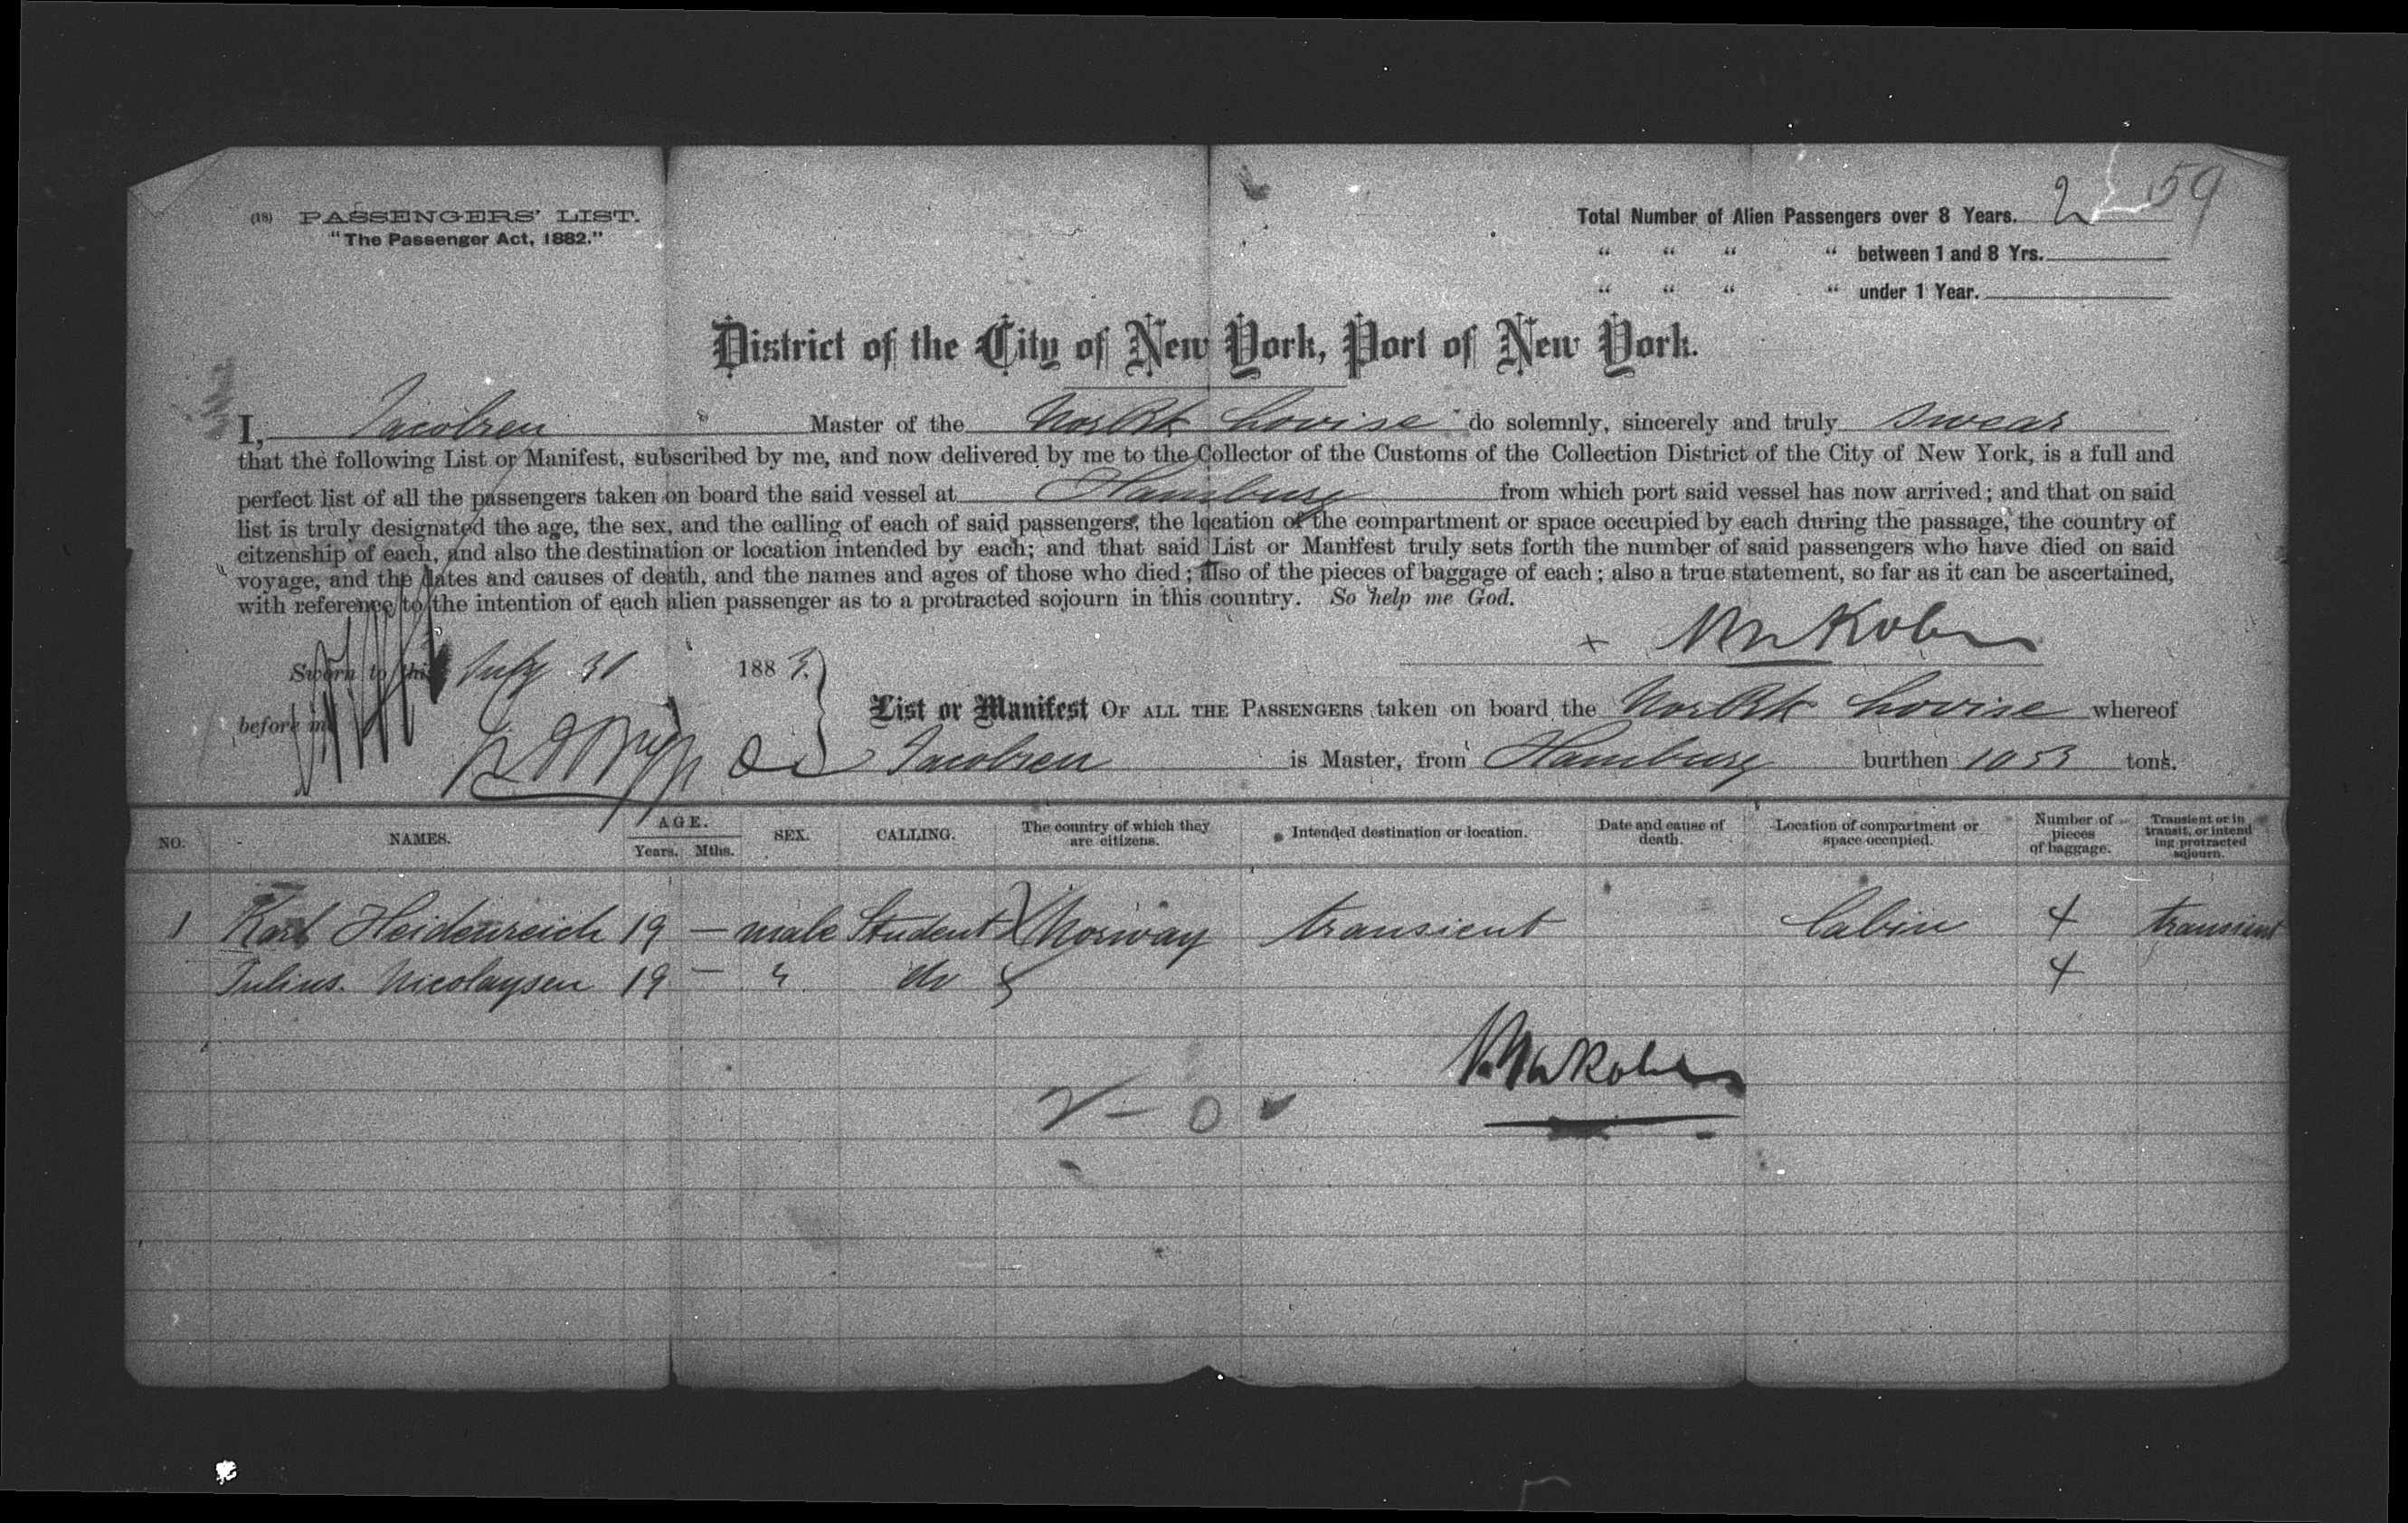 59
(18) PASSENGERS' LIST.
"The Passenger Act, 1882."
Total Number of Alien Passengers over 8 Years. 2
" " " " between 1 and 8 Yrs.
" " " " under 1 Year.
District of the City of New York, Port of New York.
I, Jacobsen Master of the Nor Bk Lovise do solemnly, sincerely and truly swear
that the following List or Manifest, subscribed by me, and now delivered by me to the Collector of the Customs of the Collection District of the City of New York, is a full and
perfect list of all the passengers taken on board the said vessel at Hamburg from which port said vessel has now arrived; and that on said
list is truly designated the age, the sex, and the calling of each of said passengers, the location of the compartment or space occupied by each during the passage, the country of
citzenship of each, and also the destination or location intended by each; and that said List or Manifest truly sets forth the number of said passengers who have died on said
voyage, and the dates and causes of death, and the names and ages of those who died; also of the pieces of baggage of each; also a true statement, so far as it can be ascertained,
with reference to the intention of each alien passenger as to a protracted sojourn in this country. So help me God.
Sworn to this July 31 1883
before me
List or Manifest OF ALL THE PASSENGERS taken on board the Nor Bk Lovise whereof
Jacobsen is Master, from Hamburg burthen 1053 tons.
NO. NAMES. AGE. Years. Mths. SEX. CALLING. The country of which they are citizens. Intended destination or location. Date and cause of death. Location of compartment or space occupied. Number of pieces of baggage. Transient or in transit, or intending protracted sojourn.
1 Karl Heidenreich 19 — male Student Norway transient Cabin 4 transient
Julius Nicolaysen 19 — " do 4
2 - 0